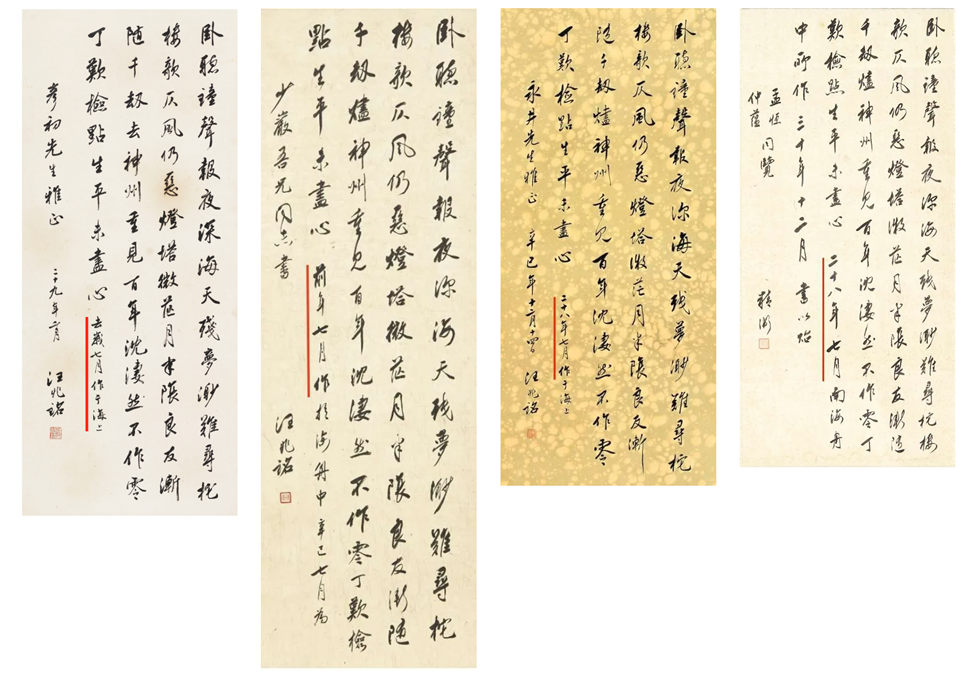 臥聽鐘聲報夜深海天殘夢渺難尋柁
樓欹仄風仍惡燈塔微茫月半陰良友漸
隨千劫去神州重見百年沈淒然不作零
丁歎檢點生平未盡心 去歲七月作于海上
初先生雅正 二十九年 月 汪兆銘
臥聽鐘聲報夜深海天殘夢渺難尋柁
樓欹仄風仍惡燈塔微茫月半陰良友漸隨
千劫燼神州重見百年沈淒然不作零丁歎檢
點生平未盡心 前年七月作於海舟中 辛巳七月為
少巖吾兄同志書 汪兆銘
臥聽鐘聲報夜深海天殘夢渺難尋柁
樓欹仄風仍惡燈塔微茫月半陰良友漸
隨千劫燼神州重見百年沈淒然不作零
丁歎檢點生平未盡心 二十八年七月作于海上
永井先生雅正 辛巳年十二月十四日 汪兆銘
臥聽鐘聲報夜深海天殘夢渺難尋柁樓
欹仄風仍惡燈塔微茫月半陰良友漸隨
千劫燼神州重見百年沈淒然不作零丁
歎檢點生平未盡心 二十八年七月南海舟
中所作三十年十二月書以貽
孟恒
仲蘊 同覽 精衛